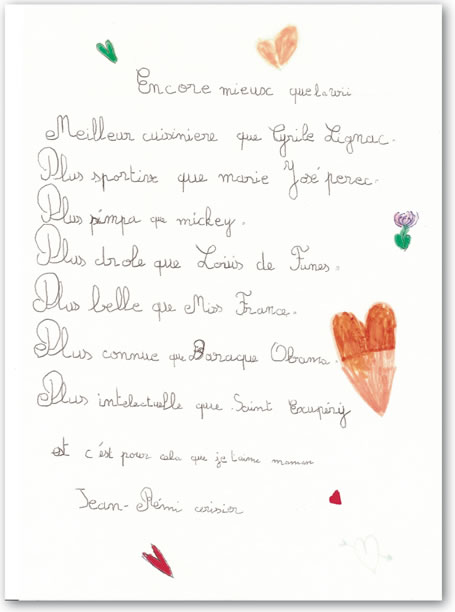 Encore mieux que la wii
Meilleur cuisiniere que Cyrile Lignac.
Plus sportive que marie José perec.
Plus simpa que mickey.
Plus drole que Loüis de Funes.
Plus belle que Miss France.
Plus connue que Baraque Obama.
Plus intelectuelle que Saint Exupérÿ
et c'est pour cela que je t'aime maman
Jean-Rémi cerisier